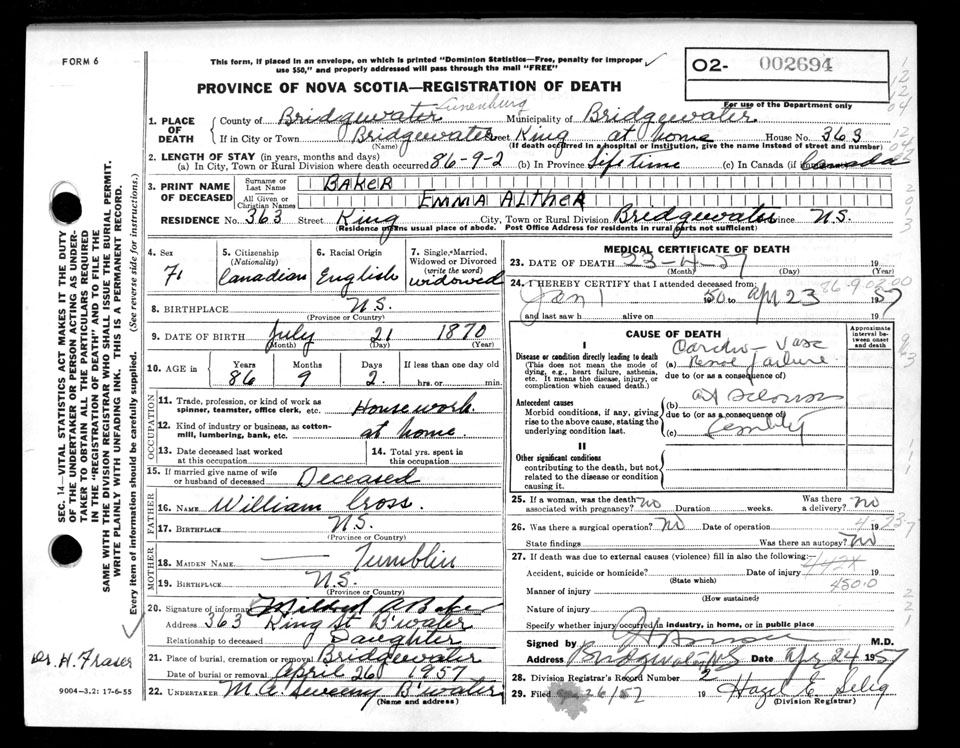 FORM 6
This form, if placed in an envelope, on which is printed "Dominion Statistics—Free, penalty for improper
use $50," and properly addressed will pass through the mail "FREE"
O2- 002694
For use of the Department only
PROVINCE OF NOVA SCOTIA—REGISTRATION OF DEATH
Lunenburg
1. PLACE OF DEATH
County of Bridgewater Municipality of Bridgewater
If in City or Town Bridgewater Street King at home House No. 363
(Name) (If death occurred in a hospital or institution, give the name instead of street and number)
2. LENGTH OF STAY (in years, months and days)
(a) In City, Town or Rural Division where death occurred 86-9-2 (b) In Province Lifetime (c) In Canada (if Canada
3. PRINT NAME OF DECEASED
Surname or Last Name BAKER
All Given or Christian Names EMMA ALTHER
RESIDENCE No. 363 Street King City, Town or Rural Division Bridgewater Province N.S.
(Residence means usual place of abode. Post Office Address for residents in rural parts not sufficient)
4. Sex
5. Citizenship (Nationality) Canadian
6. Racial Origin English
7. Single, Married, Widowed or Divorced (write the word) widowed
8. BIRTHPLACE N.S.
(Province or Country)
9. DATE OF BIRTH July 21 1870
(Month) (Day) (Year)
10. AGE in Years 86 Months 9 Days 2 If less than one day old hrs. or min.
OCCUPATION
11. Trade, profession, or kind of work as spinner, teamster, office clerk, etc. Housework
12. Kind of industry or business, as cotton-mill, lumbering, bank, etc. at home
13. Date deceased last worked at this occupation
14. Total yrs. spent in this occupation
15. If married give name of wife or husband of deceased Deceased
FATHER
16. NAME William Cross
17. BIRTHPLACE N.S.
(Province or Country)
MOTHER
18. MAIDEN NAME Tumblin
19. BIRTHPLACE N.S.
(Province or Country)
20. Signature of informant Mildred A Baker
Address 363 King St B'water
Relationship to deceased Daughter
21. Place of burial, cremation or removal Bridgewater
Date of burial or removal April 26 1957
22. UNDERTAKER M. A. Sweeny B'water
(Name and address)
MEDICAL CERTIFICATE OF DEATH
23. DATE OF DEATH 23-4-57 19
(Month) (Day) (Year)
86.9.02.00
24. I HEREBY CERTIFY that I attended deceased from:
Jan 1 1950 to Apr 23 1957
and last saw h alive on 19
CAUSE OF DEATH
Approximate interval between onset and death
I
Disease or condition directly leading to death
(This does not mean the mode of dying, e.g., heart failure, asthenia, etc. It means the disease, injury, or complication which caused death.)
(a) Cardio-Vasc Renal failure
due to (or as a consequence of)
Antecedent causes
Morbid conditions, if any, giving rise to the above cause, stating the underlying condition last.
(b)
due to (or as a consequence of)
(c)
II
Other significant conditions
contributing to the death, but not related to the disease or condition causing it.
25. If a woman, was the death associated with pregnancy? No Duration weeks. Was there a delivery? no
26. Was there a surgical operation? No Date of operation 19
State findings Was there an autopsy? No
27. If death was due to external causes (violence) fill in also the following:
Accident, suicide or homicide? Date of injury 19
(State which)
Manner of injury 450.0
(How sustained)
Nature of injury
Specify whether injury occurred in industry, in home, or in public place
Signed by M.D.
Address Bridgewater NS Date Apr 24 1957
28. Division Registrar's Record Number 2
29. Filed 26/57 19 Hazel E. Selig
(Division Registrar)
SEC. 14—VITAL STATISTICS ACT MAKES IT THE DUTY
OF THE UNDERTAKER OR PERSON ACTING AS UNDER-
TAKER TO OBTAIN ALL THE PARTICULARS REQUIRED
IN THE "REGISTRATION OF DEATH" AND TO FILE THE
SAME WITH THE DIVISION REGISTRAR WHO SHALL ISSUE THE BURIAL PERMIT.
WRITE PLAINLY WITH UNFADING INK. THIS IS A PERMANENT RECORD.
Every item of information should be carefully supplied. (See reverse side for instructions.)
Dr. H. Fraser
9004-3.2: 17-6-55